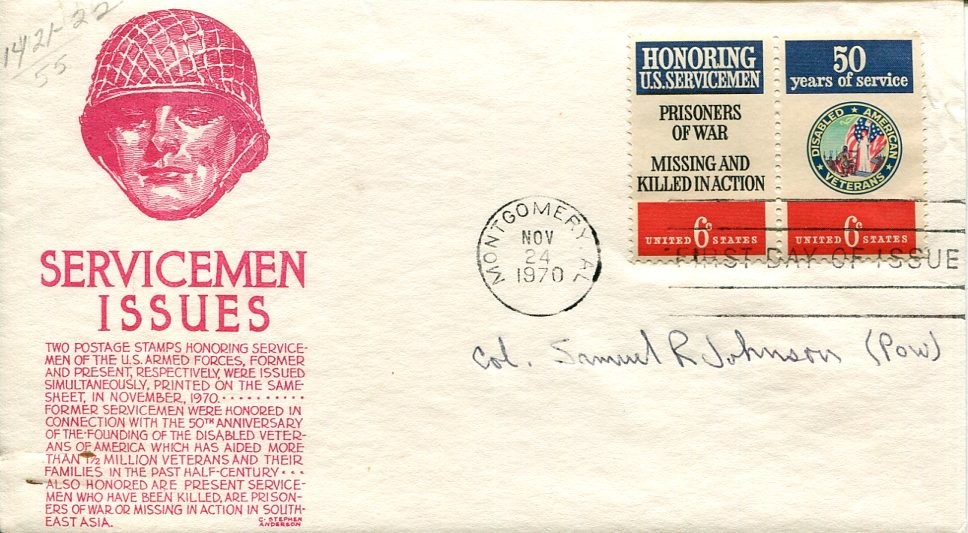 1421-22
55
SERVICEMEN
ISSUES
TWO POSTAGE STAMPS HONORING SERVICE-
MEN OF THE U.S. ARMED FORCES, FORMER
AND PRESENT, RESPECTIVELY, WERE ISSUED
SIMULTANEOUSLY, PRINTED ON THE SAME
SHEET, IN NOVEMBER, 1970..........
FORMER SERVICEMEN WERE HONORED IN
CONNECTION WITH THE 50TH ANNIVERSARY
OF THE FOUNDING OF THE DISABLED VETER-
ANS OF AMERICA WHICH HAS AIDED MORE
THAN 1½ MILLION VETERANS AND THEIR
FAMILIES IN THE PAST HALF-CENTURY...
ALSO HONORED ARE PRESENT SERVICE-
MEN WHO HAVE BEEN KILLED, ARE PRISON-
ERS OF WAR OR MISSING IN ACTION IN SOUTH-
EAST ASIA.
C. STEPHEN
ANDERSON
HONORING
U.S. SERVICEMEN
PRISONERS
OF WAR
MISSING AND
KILLED IN ACTION
UNITED 6c STATES
50
years of service
DISABLED ★ AMERICAN
★ VETERANS ★
UNITED 6c STATES
MONTGOMERY, AL
NOV
24
1970
FIRST DAY OF ISSUE
Col. Samuel R. Johnson (POW)